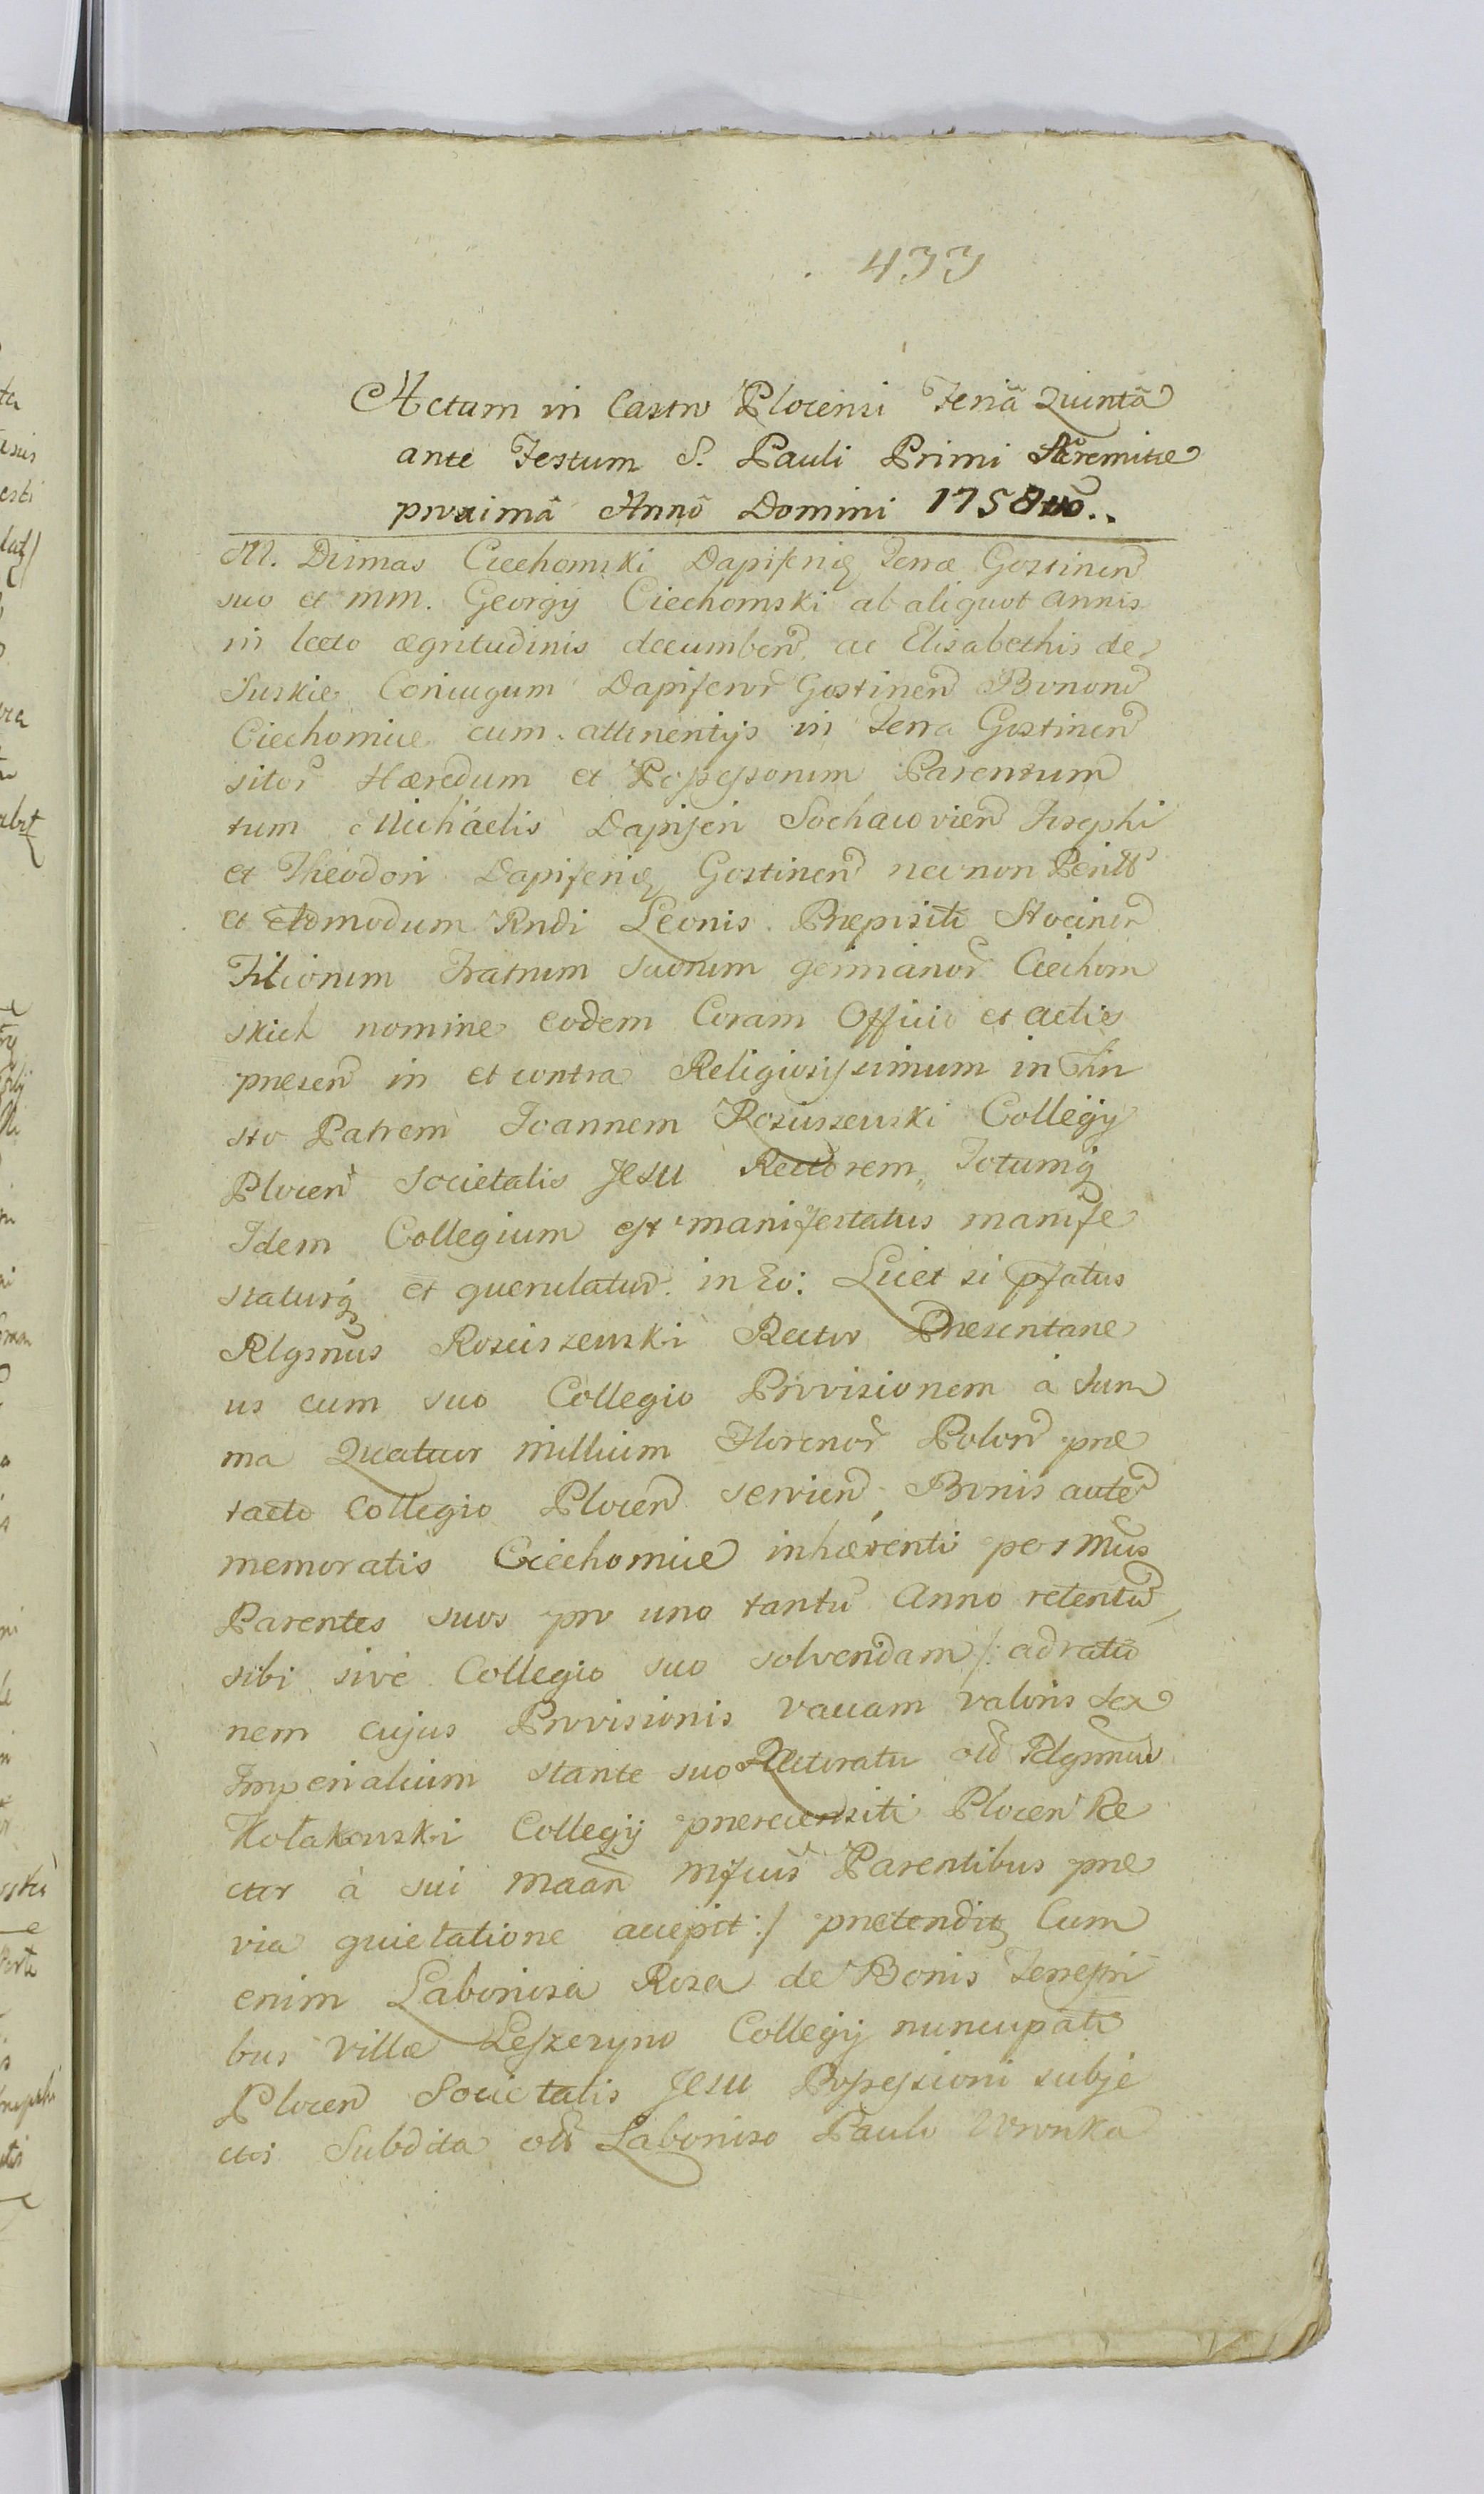 433
Actum in Castro Plocensi Feriâ Quintâ
ante Festum S. Pauli Primi Æremitæ
proximâ Annô Domini 1758vô..
M. Dismas Ciechomski Dapiferid Terræ Gostinen
suo et MM. Georgij Ciechomski ab aliquot annis
in lecto ægritudinis decumben ac Elisabethis de
Suskie Coniugum Dapiferor Gostinen Bonor
Ciechomice cum attinentijs in Terra Gostinen
sitor Hæredum et Possessorum Parentum
tum Michaelis Dapiferi Sochaczovien Josephi
et Theodori Dapiferid Gostinen necnon Perill
et Admodum Rndi Leonis Præpositi
Filiorum Fratrum suorum germanor Ciechom
skich nomine eodem Coram Officio et actis
præsen in et contra Religiosissimum in Xin
sto Patrem Joannem Rosciszewski Collegij
Plocen Societatis Jesu Rectorem, Totumq
Idem Collegium est manifestatus manife
staturq et querulatur in Eo: Licet si pfatus
Rlgsmus Rosciszewski Rector Præsentane
us cum suo Collegio Provisionem à Sum
ma Quatuor millium Florenor Polon præ
tacto Collegio Plocen servien, Bonis autem
memoratis Ciechomice inhærenti per Mcos
Parentes suos pro uno tantu Anno retentu
sibi sive Collegio suo solvendam /: ad ratio
nem cujus Provisionis vaccam valoris sex
Imperialium stante suo Rectoratu old Rlgsmus
Kołakowski Collegij prærecensiti Plocen Re
ctor à sui Maan Mfcis Parentibus præ
via quietatione accepit :/ prætendit Cum
enim Laboriosa Rosa de Bonis Terrestri
bus Villa Leszczyno Collegij nuncupati
Plocen Societatis Jesu Possessioni subje
ctis Subdita olim Laborioso Paulo Wronka